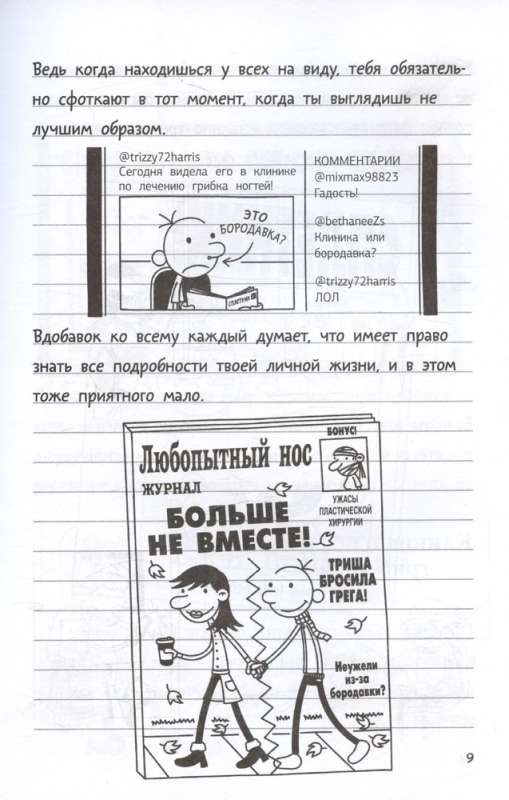 Ведь когда находишься у всех на виду, тебя обязатель-
но сфоткают в тот момент, когда ты выглядишь не
лучшим образом.
@trizzy72harris
Сегодня видела его в клинике
по лечению грибка ногтей!
ЭТО
БОРОДАВКА?
СПЛЕТНИК
КОММЕНТАРИИ
@mixmax98823
Гадость!
@bethaneeZs
Клиника или
бородавка?
@trizzy72harris
ЛОЛ
Вдобавок ко всему каждый думает, что имеет право
знать все подробности твоей личной жизни, и в этом
тоже приятного мало.
БОНУС!
Любопытный нос
ЖУРНАЛ
УЖАСЫ
ПЛАСТИЧЕСКОЙ
ХИРУРГИИ
БОЛЬШЕ
НЕ ВМЕСТЕ!
ТРИША
БРОСИЛА
ГРЕГА!
Неужели
из-за
бородавки?
9